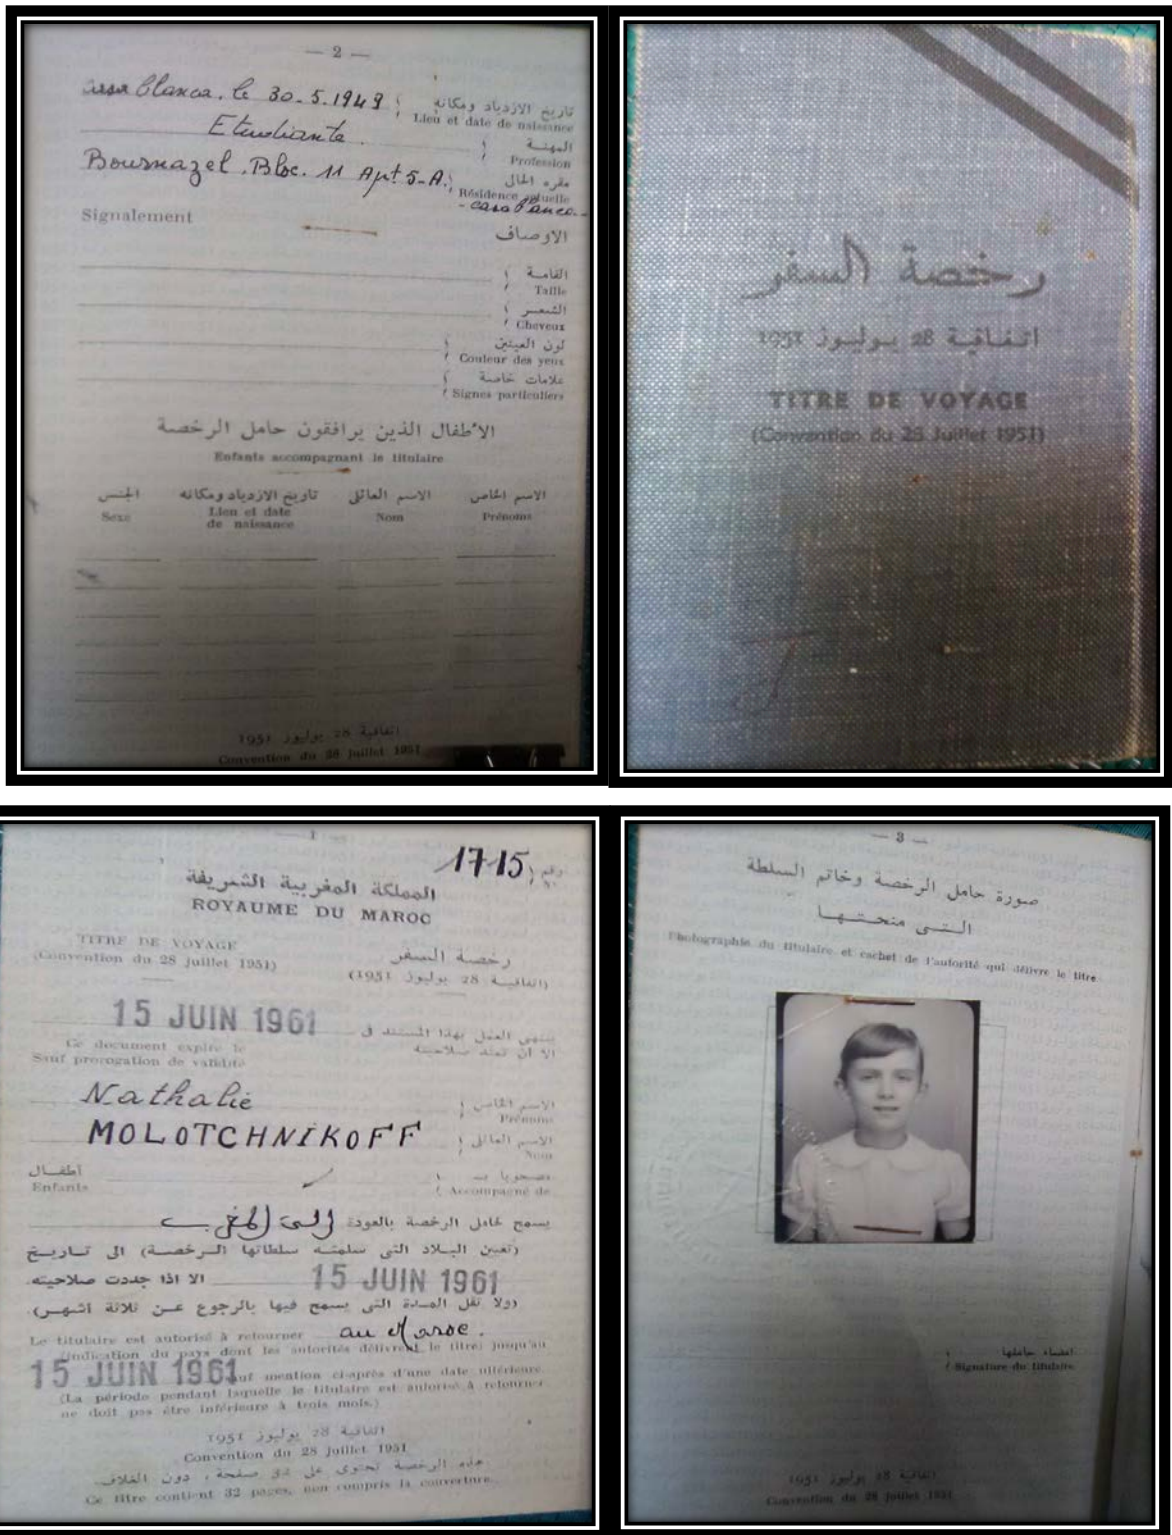 — 2 —
Casa blanca. le 30-5-1949
تاريخ الازدياد ومكانه
Lieu et date de naissance
Etudiante.
المهنة
Profession
Bournazel. Bloc. 11 Apt 5-A.
مقره الحال
Résidence actuelle
- casablanca -
Signalement
الاوصاف
القامة
Taille
الشعر
Cheveux
لون العينين
Couleur des yeux
علامات خاصة
Signes particuliers
الأطفال الذين يرافقون حامل الرخصة
Enfants accompagnant le titulaire
الاسم الخاص الاسم العائلى تاريخ الازدياد ومكانه الجنس
Sexe Lieu et date de naissance Nom Prénoms
اتفاقية 28 يوليوز 1951
Convention du 28 Juillet 1951
رخصة السفر
اتفاقية 28 يوليوز 1951
TITRE DE VOYAGE
(Convention du 28 Juillet 1951)
— 1 —
رقم 1715
المملكة المغربية الشريفة
ROYAUME DU MAROC
TITRE DE VOYAGE
(Convention du 28 Juillet 1951)
رخصة السفر
(اتفاقية 28 يوليوز 1951)
15 JUIN 1961
ينتهى العمل بهذا المستند فى
الا ان تمتد صلاحيته
Ce document expire le
Sauf prorogation de validité
Nathalie
الاسم الخاص
Prénoms
MOLOTCHNIKOFF
الاسم العائلى
Nom
أطفال
Enfants
مصحوبا بـ
Accompagné de
يسمح لحامل الرخصة بالعودة إلى المغرب
(تعيين البلاد التى سلمته سلطاتها الرخصة) الى تاريخ
15 JUIN 1961 الا اذا جددت صلاحيته.
(ولا تقل المدة التى يسمح فيها بالرجوع عن ثلاثة اشهر).
Le titulaire est autorisé à retourner au Maroc.
(indication du pays dont les autorités délivrent le titre) jusqu'au
15 JUIN 1961 sauf mention ci-après d'une date ultérieure.
(La période pendant laquelle le titulaire est autorisé à retourner
ne doit pas être inférieure à trois mois.)
اتفاقية 28 يوليوز 1951
Convention du 28 Juillet 1951
هذه الرخصة تحتوى على 32 صفحة، دون الغلاف.
Ce titre contient 32 pages, non compris la couverture.
— 3 —
صورة حامل الرخصة وخاتم السلطة
التى منحتها
Photographie du titulaire et cachet de l'autorité qui délivre le titre
امضاء حاملها
Signature du titulaire
اتفاقية 28 يوليوز 1951
Convention du 28 Juillet 1951